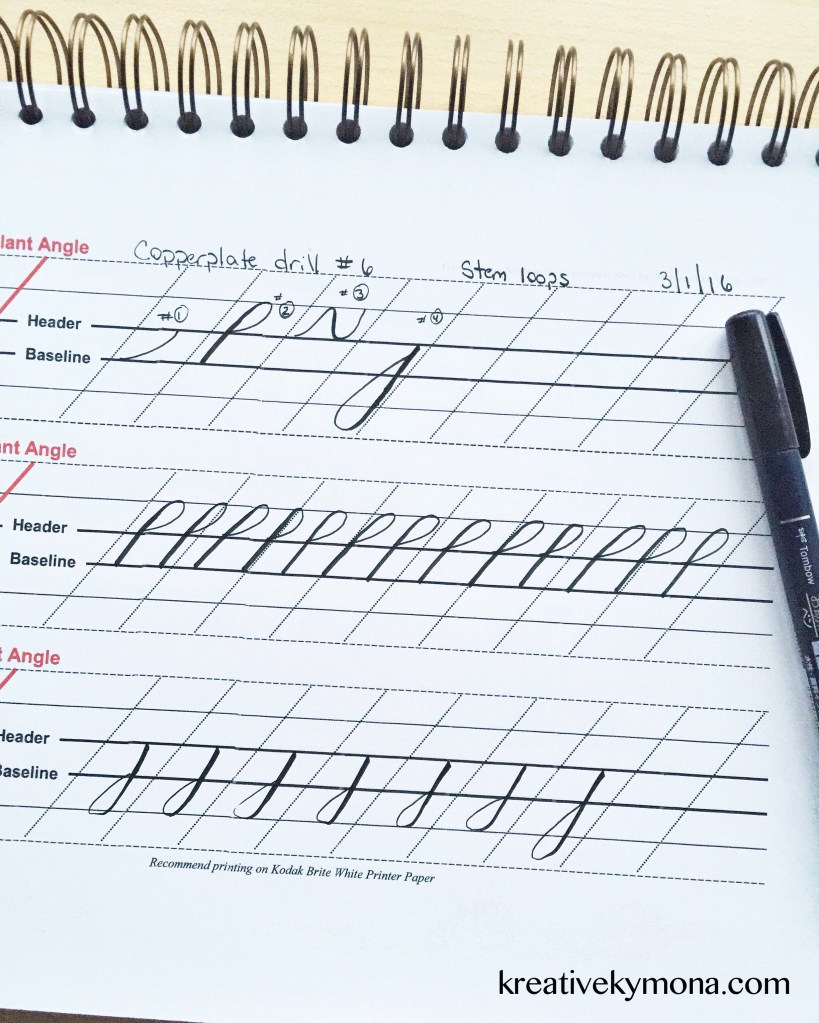 lant Angle
Copperplate drill # 6 Stem loops 3/1/16
#1 #2 #3 #4
Header
Baseline
nt Angle
Header
Baseline
t Angle
Header
Baseline
Recommend printing on Kodak Brite White Printer Paper
Tombow
kreativekymona.com